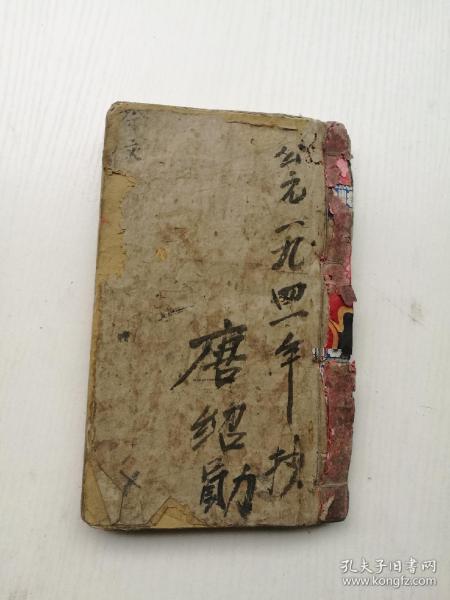 公元一九四一年抄
唐绍勋
孔夫子旧书网
www.kongfz.com